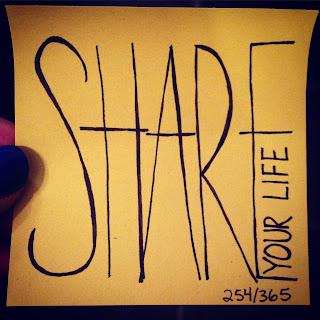 SHARE
YOUR LIFE
254/365